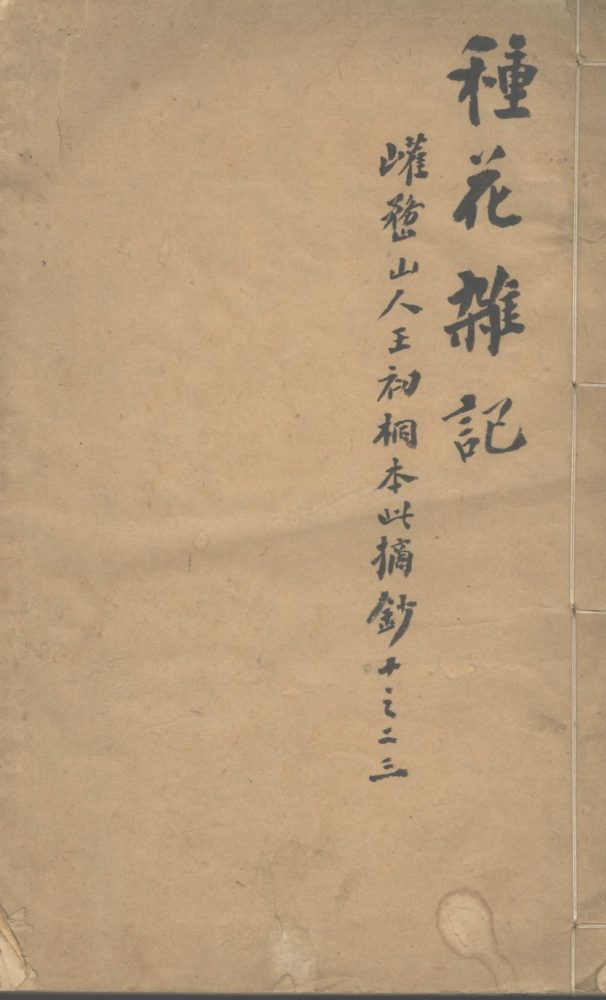 種花雜記
巏嵍山人王初桐本此摘鈔十之二三